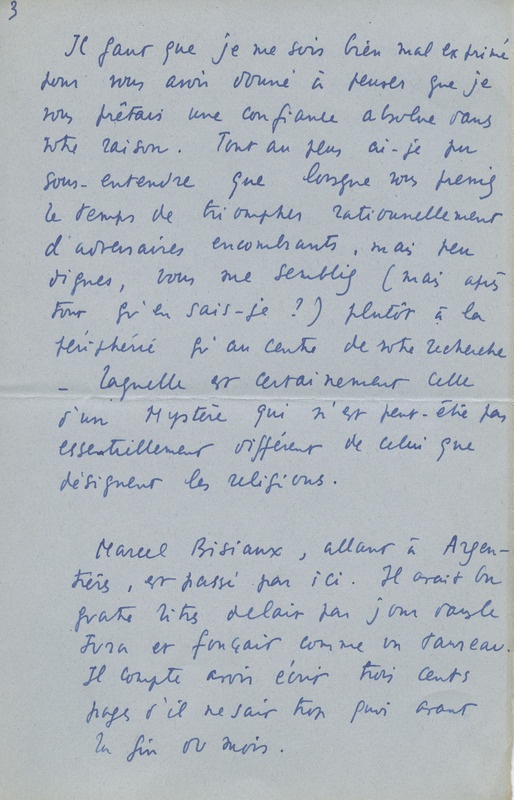 3
Il faut que je me sois bien mal exprimé
pour vous avoir donné à penser que je
vous prêtais une confiance absolue dans
votre raison. Tout au plus ai-je pu
sous-entendre que lorsque vous preniez
le temps de triompher rationnellement
d'adversaires encombrants, mais peu
dignes, vous me sembliez (mais après
tout qu'en sais-je ?) plutôt à la
périphérie qu'au centre de votre recherche
- laquelle est certainement celle
d'un Mystère qui n'est peut-être pas
essentiellement différent de celui que
désignent les religions.
Marcel Bisiaux, allant à Argen-
tières, est passé par ici. Il avait bu
quatre litres de lait par jour dans le
Jura et fonçait comme un taureau.
Il compte avoir écrit trois cents
pages d'il ne sait trop quoi avant
la fin du mois.